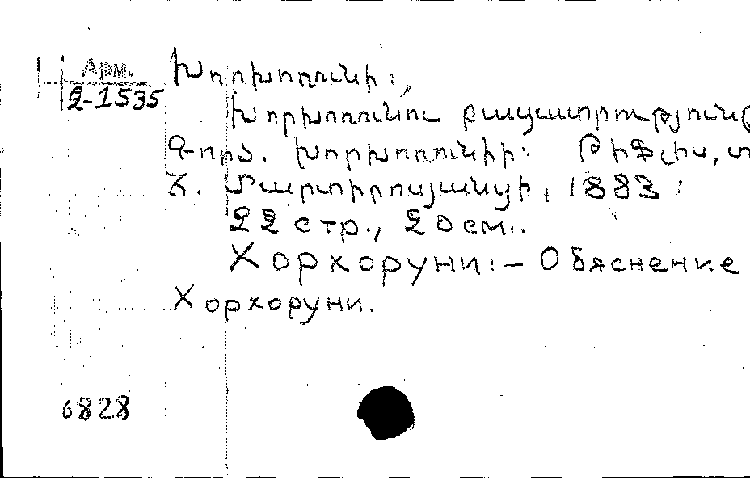 Арм.
2-1535
Խորխոռունի:
Խորխոռունու բացատրությունը
Գործ. Խորխոռունիի: Թիֆլիս, տ
Հ. Մարտիրոսյանցի, 1883:
22 стр., 20 см.
Хорхоруни: – Объяснение
Хорхоруни.
6828